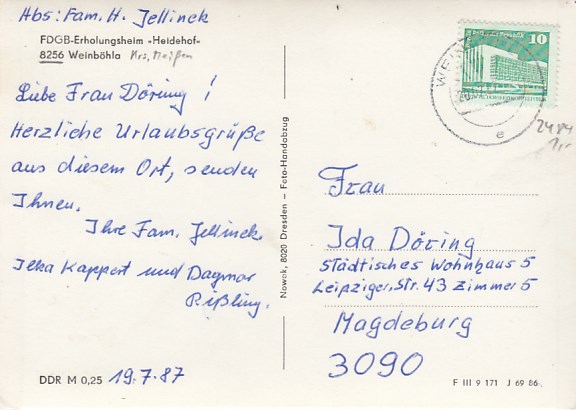 Abs: Fam. H. Jellinek
FDGB-Erholungsheim -Heidehof-
8256 Weinböhla Krs. Meißen
Liebe Frau Döring!
Herzliche Urlaubsgrüße
aus diesem Ort, senden
Ihnen.
Ihre Fam. Jellinek
Ilka Kappert und Dagmar
Rißling.
DDR M 0,25 19.7.87
Nowak, 8020 Dresden – Foto-Handabzug
10
e
2484
1,-
Frau
Ida Döring
Städtisches Wohnhaus 5
Leipziger. Str. 43 Zimmer 5
Magdeburg
3090
F III 9 171 J 69 86